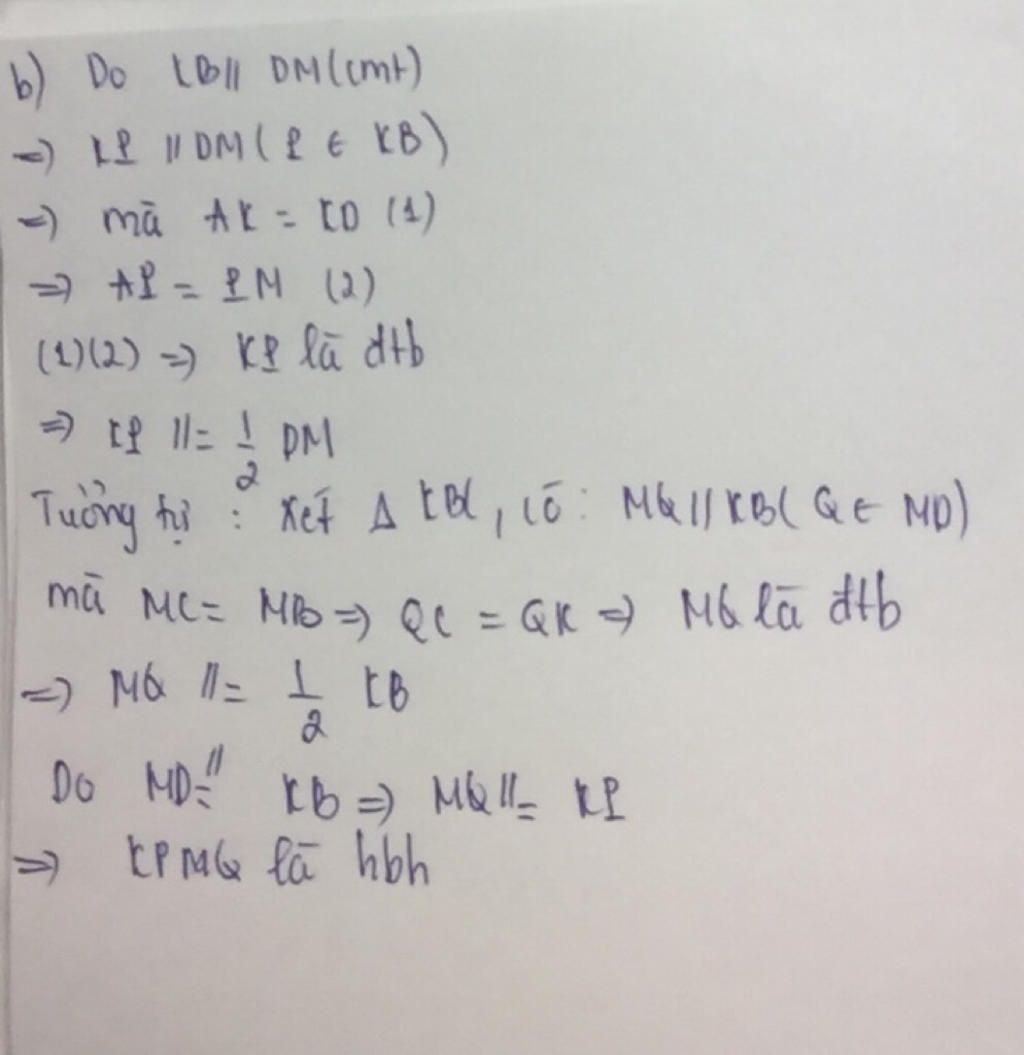 b) Do KB // DM (cmt)
=> KP // DM ( P ∈ KB )
=> mà AK = KD (1)
=> AP = PM (2)
(1)(2) => KP là đtb
=> KP //= 1/2 DM
Tương tự : Xét Δ KBC , có : MQ // KB ( Q ∈ MD )
mà MC = MB => QC = QK => MQ là đtb
=> MQ //= 1/2 KB
Do MD //= KB => MQ //= KP
=> KPMQ là hbh